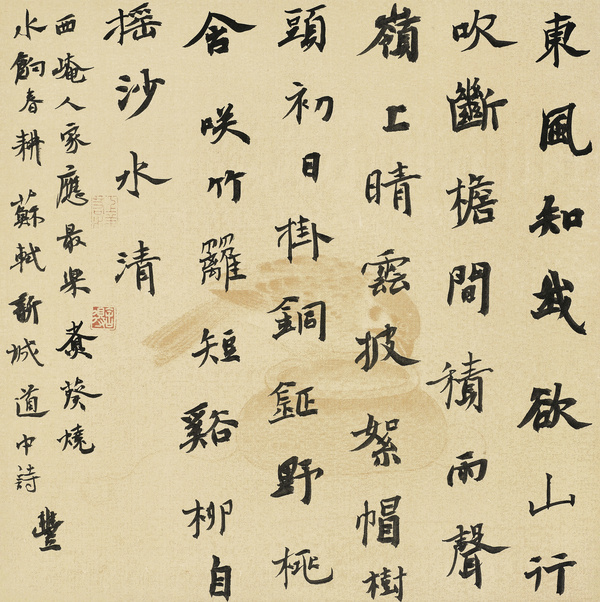 東風知我欲山行
吹斷檐間積雨聲
嶺上晴雲披絮帽樹
頭初日掛銅鉦野桃
含咲竹籬短谿柳自
搖沙水清
西崦人家應最樂煮葵燒
水餉春耕 蘇軾新城道中詩
豐